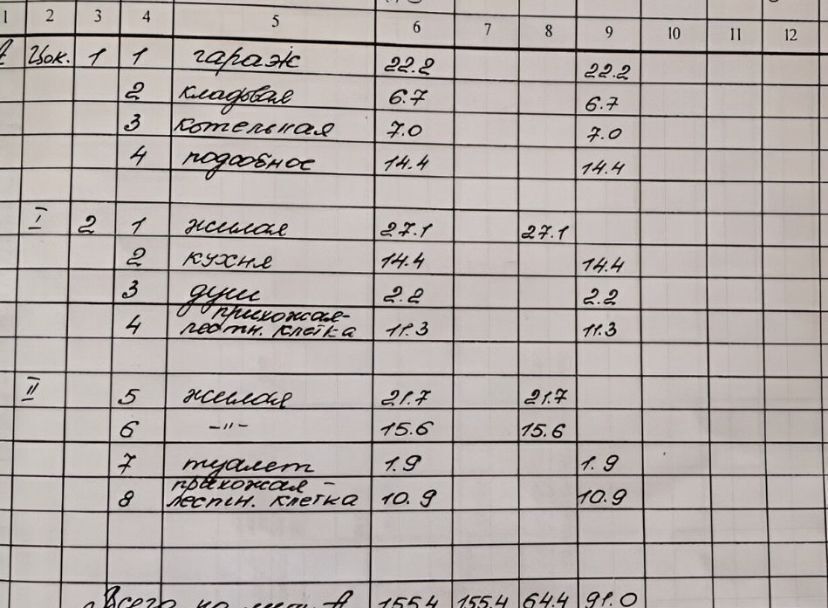 1 2 3 4 5 6 7 8 9 10 11 12
А Цок. 1 1 гараж 22.2 22.2
2 кладовая 6.7 6.7
3 котельная 7.0 7.0
4 подсобное 14.4 14.4
I 2 1 жилая 27.1 27.1
2 кухня 14.4 14.4
3 душ 2.2 2.2
прихожая-
4 лестн. клетка 11.3 11.3
II 5 жилая 21.7 21.7
6 -"- 15.6 15.6
7 туалет 1.9 1.9
прихожая-
8 лестн. клетка 10.9 10.9
Всего по лит. А 155.4 155.4 64.4 91.0